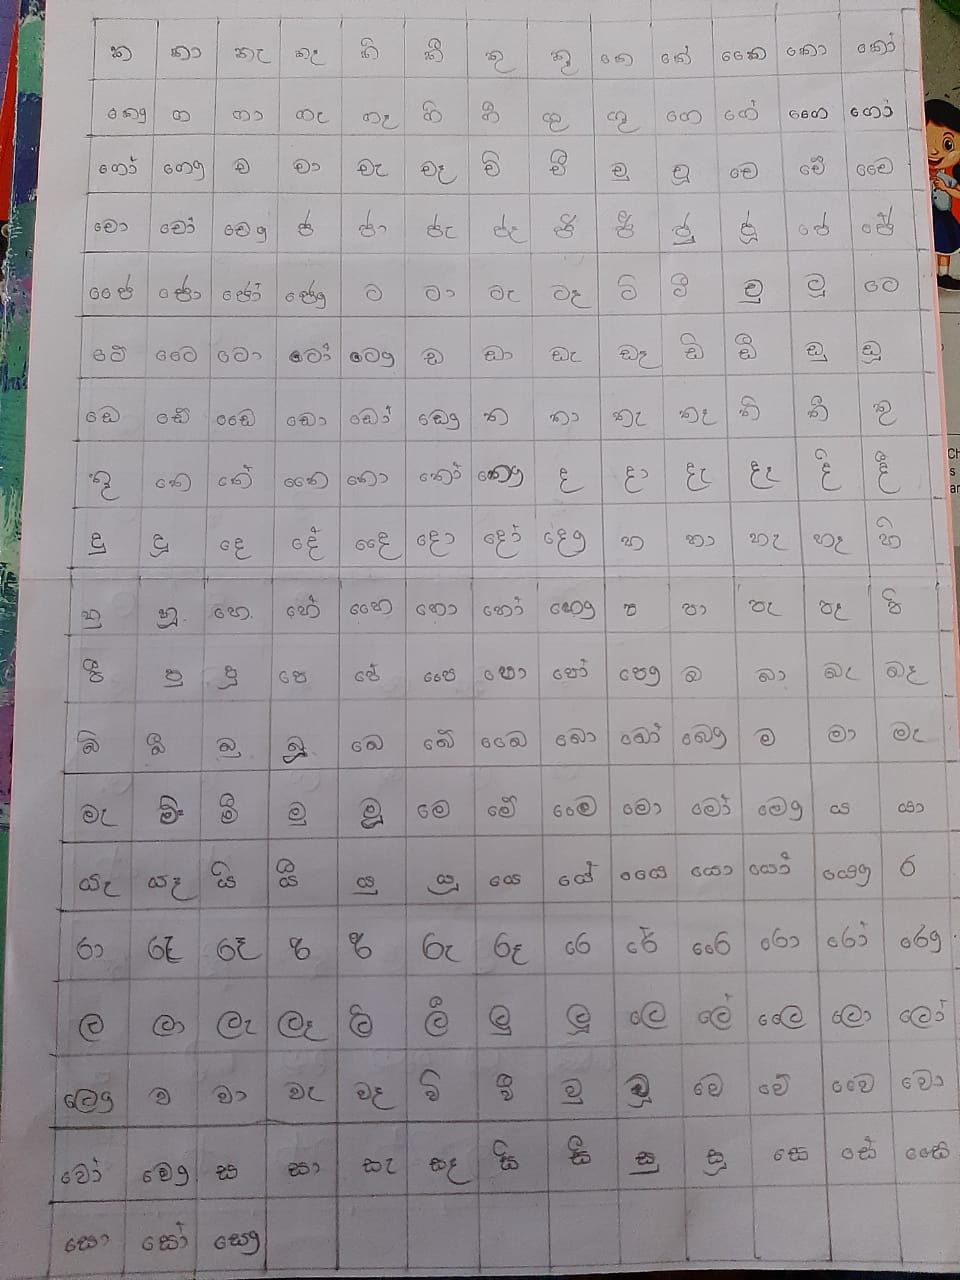 ක කා කැ කෑ කි කී කු කූ කෙ කේ කෛ කො කෝ
කෞ ග ගා ගැ ගෑ ගි ගී ගු ගූ ගෙ ගේ ගෛ ගෝ
ගෝ ගෞ ච චා චැ චෑ චි චී චු චූ චෙ චේ චෛ
චො චෝ චෞ ජ ජා ජැ ජෑ ජි ජී ජු ජූ ජෙ ජේ
ජෛ ජො ජෝ ජෞ ට ටා ටැ ටෑ ටි ටී ටු ටූ ටෙ
ටේ ටෛ ටො ටෝ ටෞ ඩ ඩා ඩැ ඩෑ ඩි ඩී ඩු ඩූ
ඩෙ ඩේ ඩෛ ඩො ඩෝ ඩෞ ත තා තැ තෑ ති තී තු
තූ තෙ තේ තෛ තො තෝ තෞ ද දා දැ දෑ දි දී
දු දූ දෙ දේ දෛ දො දෝ දෞ න නා නැ නෑ නි
නු නූ නෙ නේ නෛ නො නෝ නෞ ප පා පැ පෑ පි
පී පු පූ පෙ පේ පෛ පො පෝ පෞ බ බා බැ බෑ
බි බී බු බූ බෙ බේ බෛ බො බෝ බෞ ම මා මැ
මැ මි මී මු මූ මෙ මේ මෛ මො මෝ මෞ ය යා
යැ යෑ යි යී යු යූ යෙ යේ යෛ යො යෝ යෞ ර
රා රැ රෑ රි රී රු රූ රෙ රේ රෛ රො රෝ රෞ
ල ලා ලැ ලෑ ලි ලී ලු ලූ ලෙ ලේ ලෛ ලො ලෝ
ලෞ ව වා වැ වෑ වි වී වු වූ වෙ වේ වෛ වො
වෝ වෞ ස සා සැ සෑ සි සී සු සූ සෙ සේ සෛ
සො සෝ සෞ